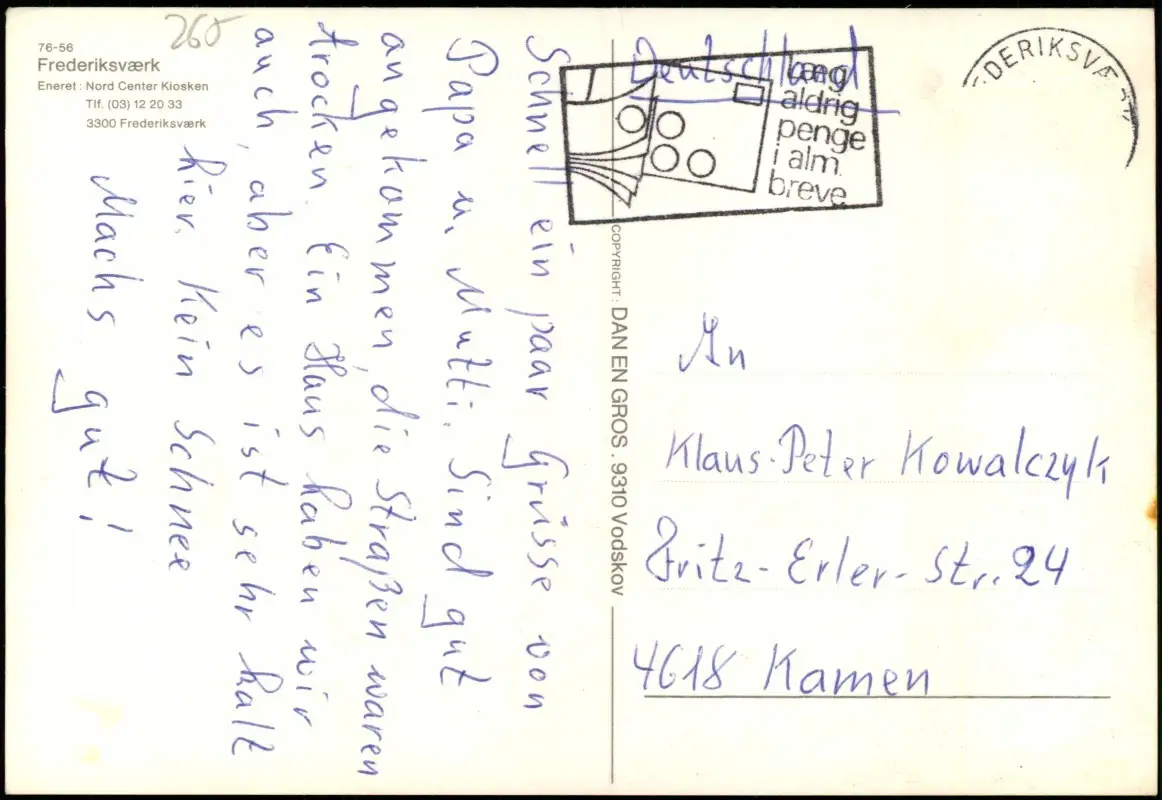 260
76-56
Frederiksværk
Eneret: Nord Center Kiosken
Tlf. (03) 12 20 33
3300 Frederiksværk
Schnell ein paar Grüsse von
Papa u. Mutti. Sind gut
angekommen, die Straßen waren
trocken. Ein Haus haben wir
auch, aber es ist sehr kalt
hier. Kein Schnee
Machs gut!
COPYRIGHT: DAN EN GROS . 9310 Vodskov
Deutschland
læg
aldrig
penge
i alm.
breve
EDERIKSVÆRK
An
Klaus-Peter Kowalczyk
Fritz-Erler-Str. 24
4618 Kamen